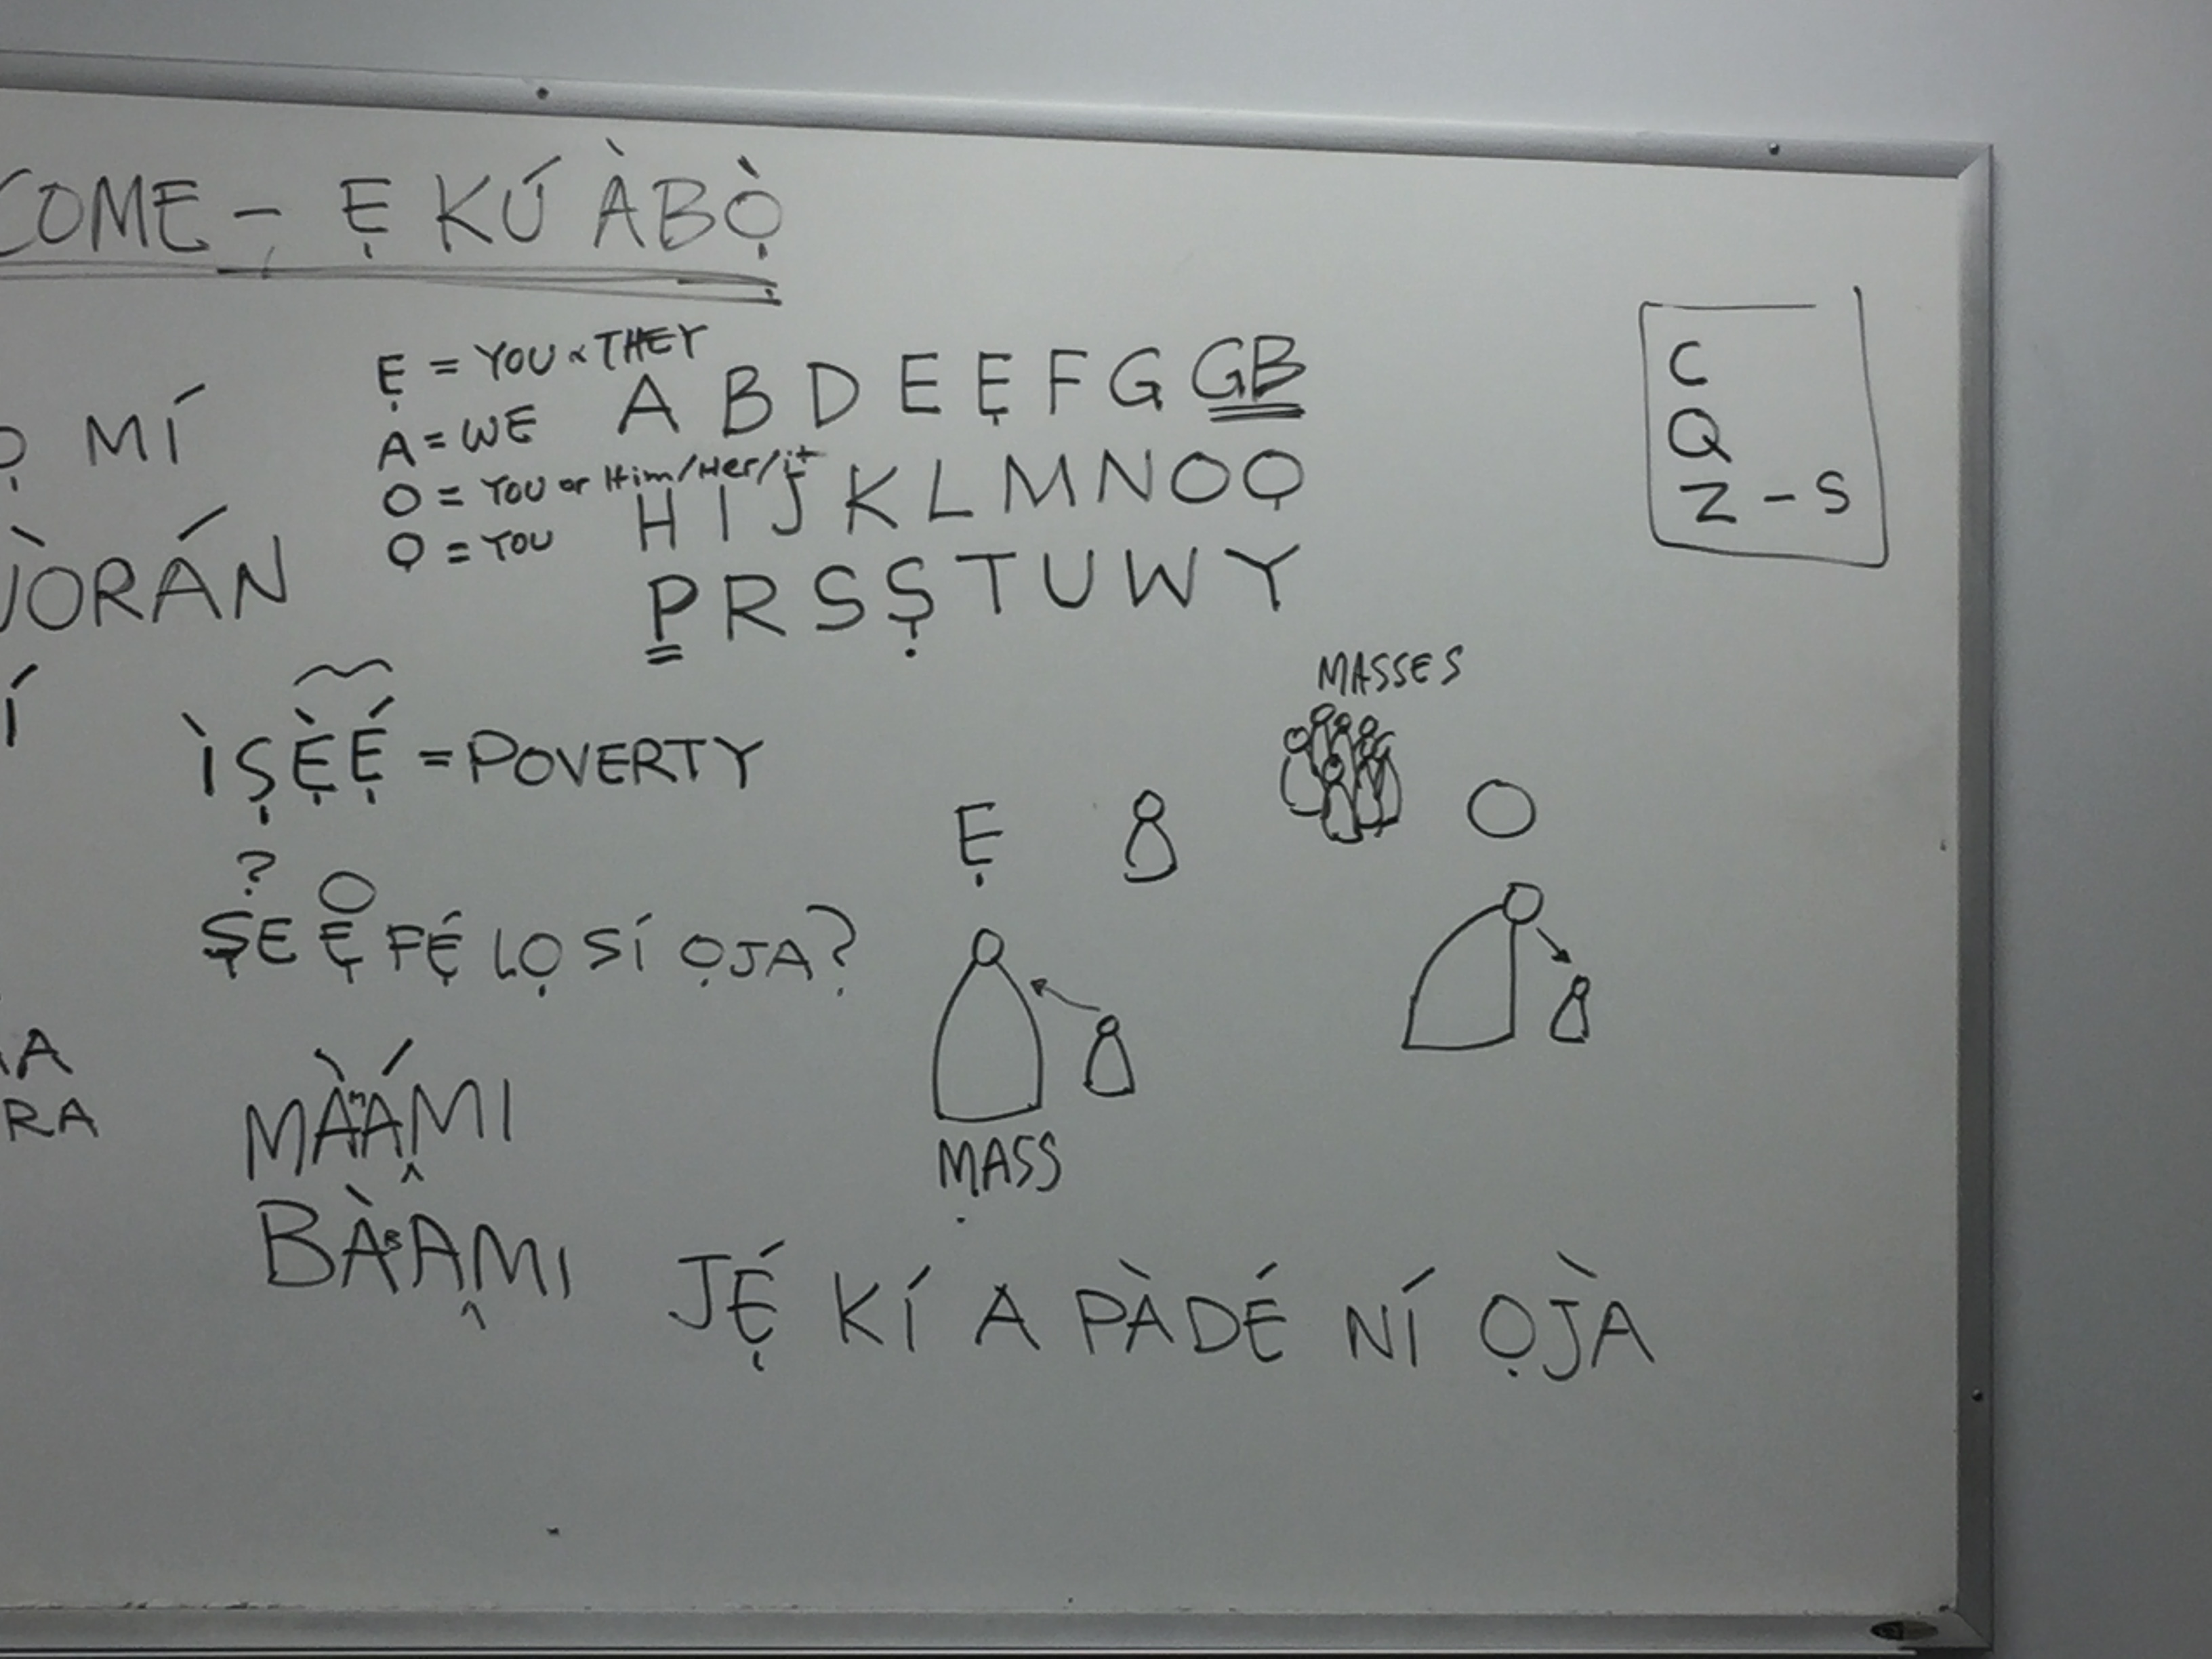 COME - Ẹ KÚ ÀBỌ̀
Ẹ = YOU & THEY
A = WE
O = YOU or Him/Her/it
Ọ = YOU
A B D E Ẹ F G GB
H I J K L M N O Ọ
P R S Ṣ T U W Y
C
Q
Z - S
Ọ MÍ
ÒRÁN
Í
ÌṢẸ̀Ẹ́ = POVERTY
?
O
ṢE Ẹ FẸ́ LỌ SÍ ỌJA?
A
RA
MÀMÁMI
BÀBAMI
MASSES
Ẹ
O
MASS
JẸ́ KÍ A PÀDÉ NÍ ỌJÀ